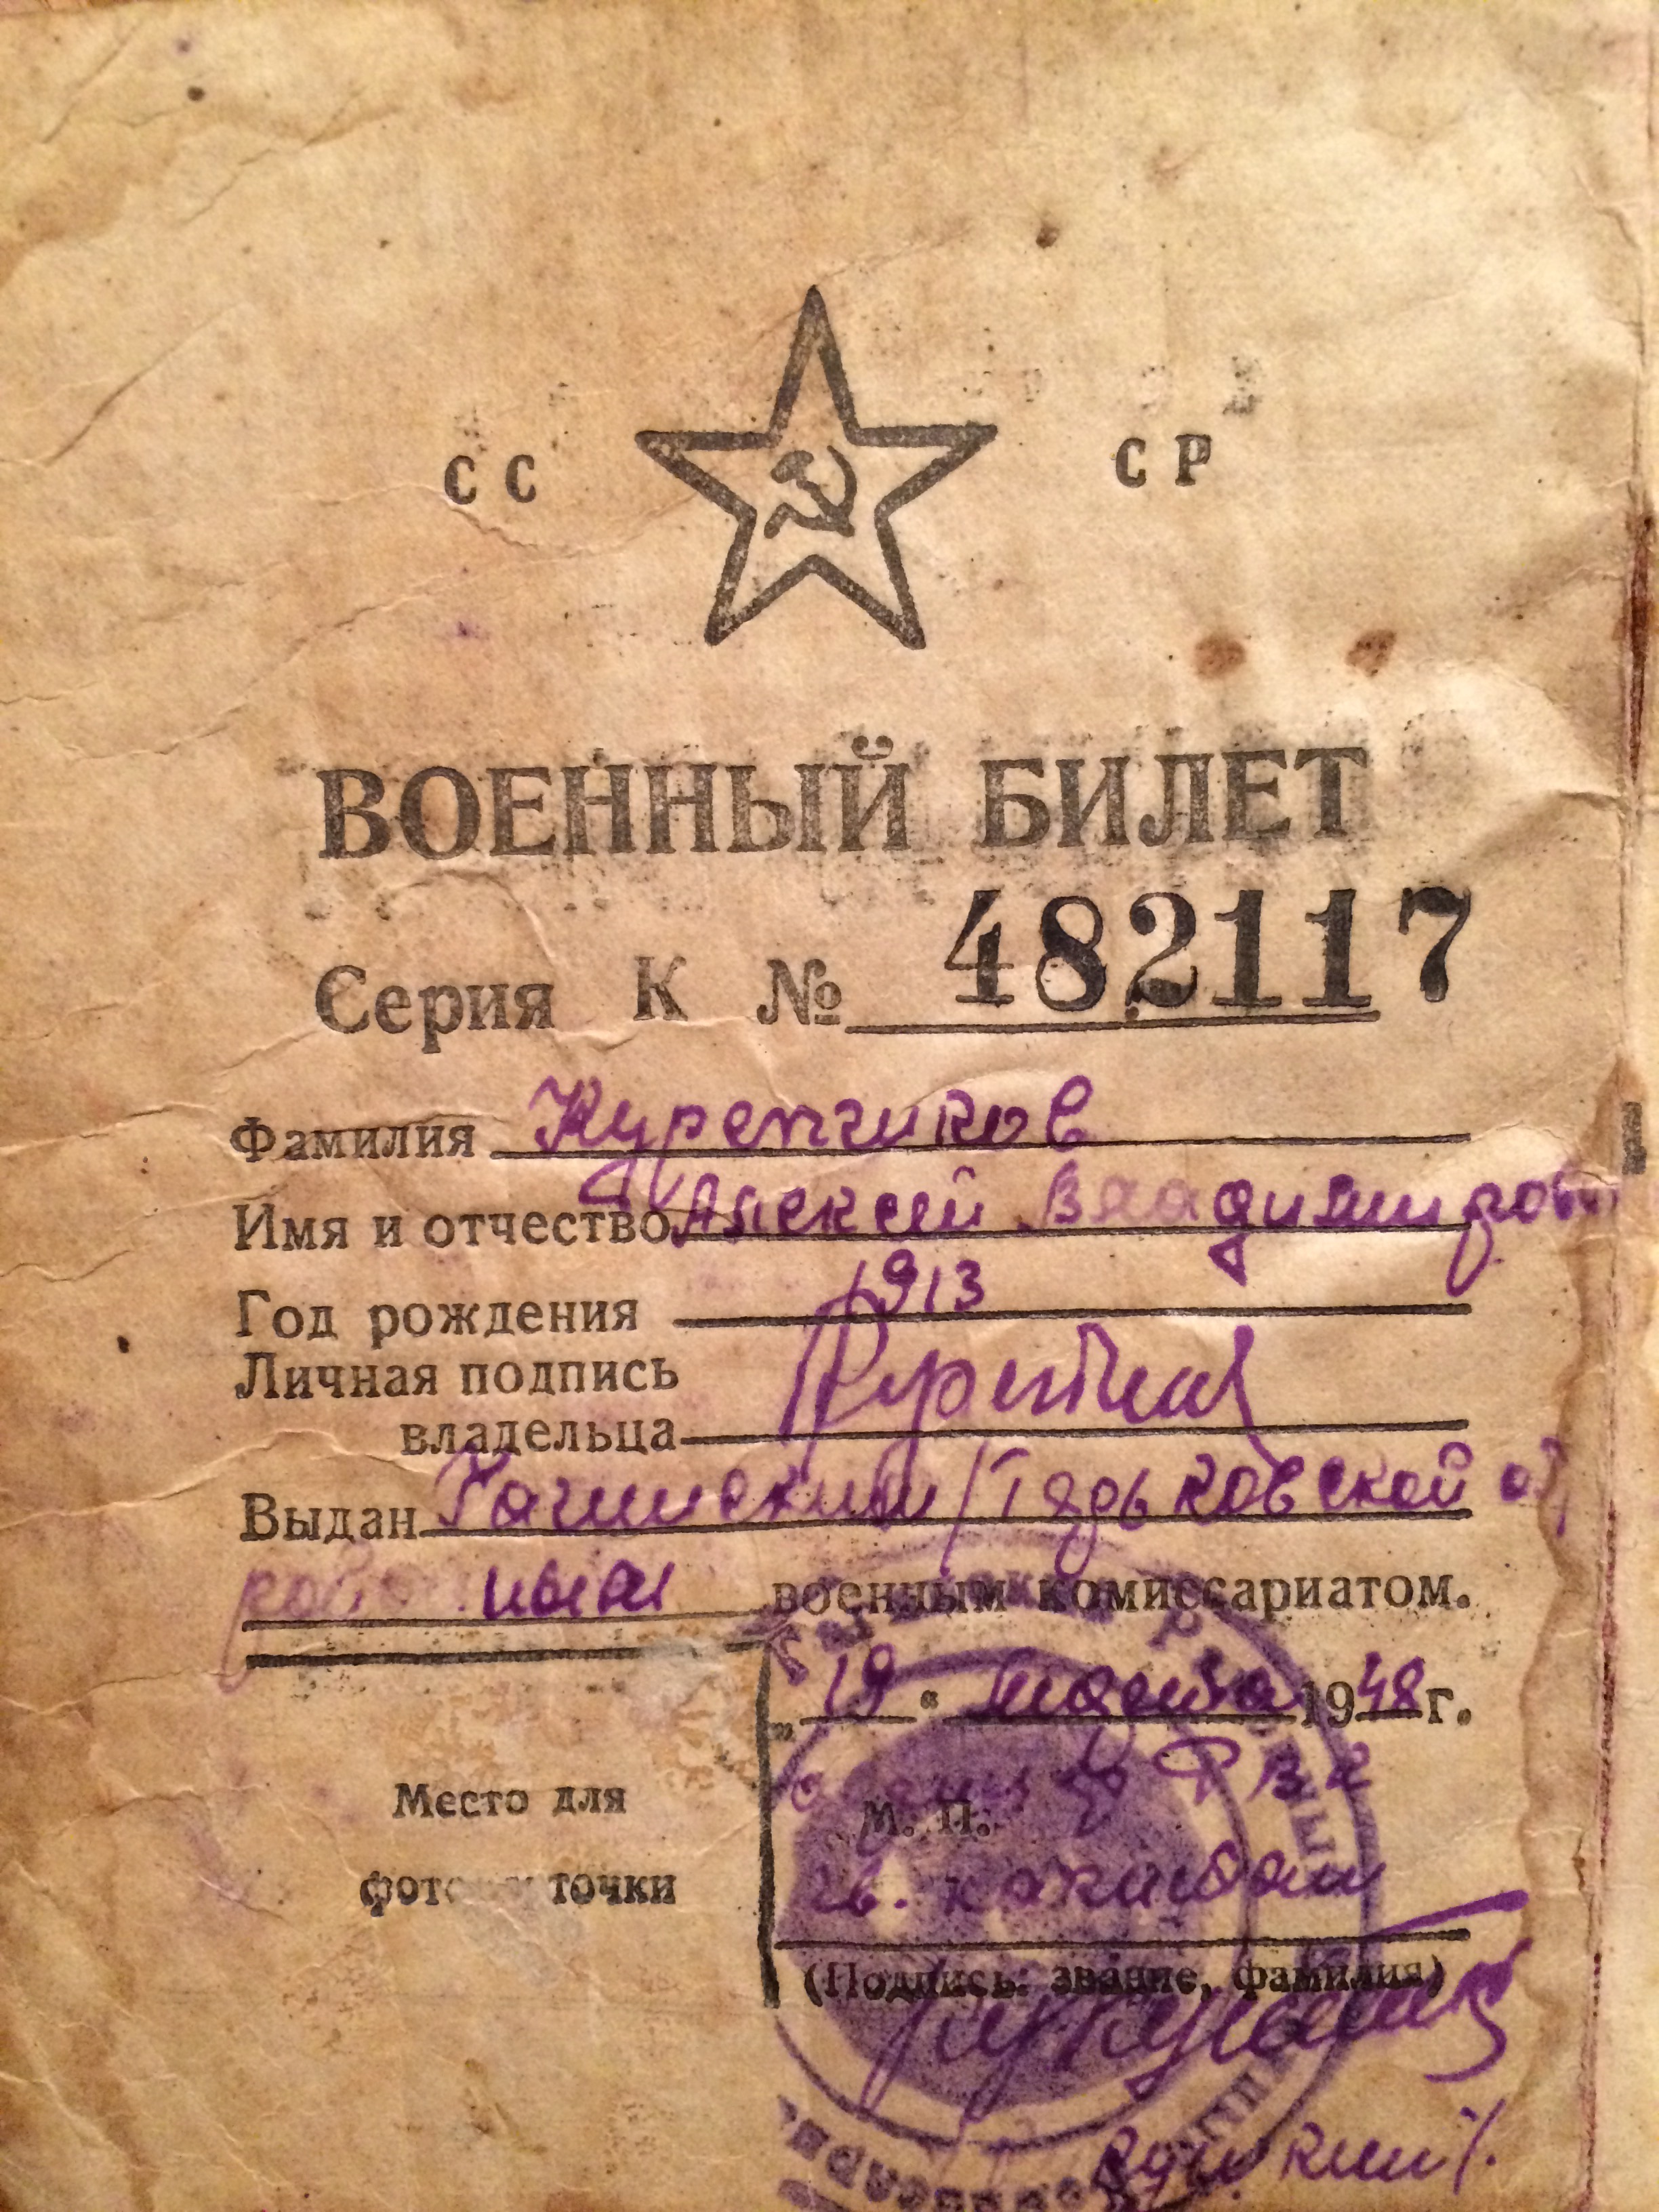 СС СР
ВОЕННЫЙ БИЛЕТ
Серия К № 482117
Фамилия Куренчиков
Имя и отчество Алексей Владимирови
Год рождения 1913
Личная подпись
владельца
Выдан Гагинским Горьковской об
районным военным комиссариатом.
„19“ марта 1948 г.
РВК
Место для
М. П.
фот точки
(Подпись: звание, фамилия)